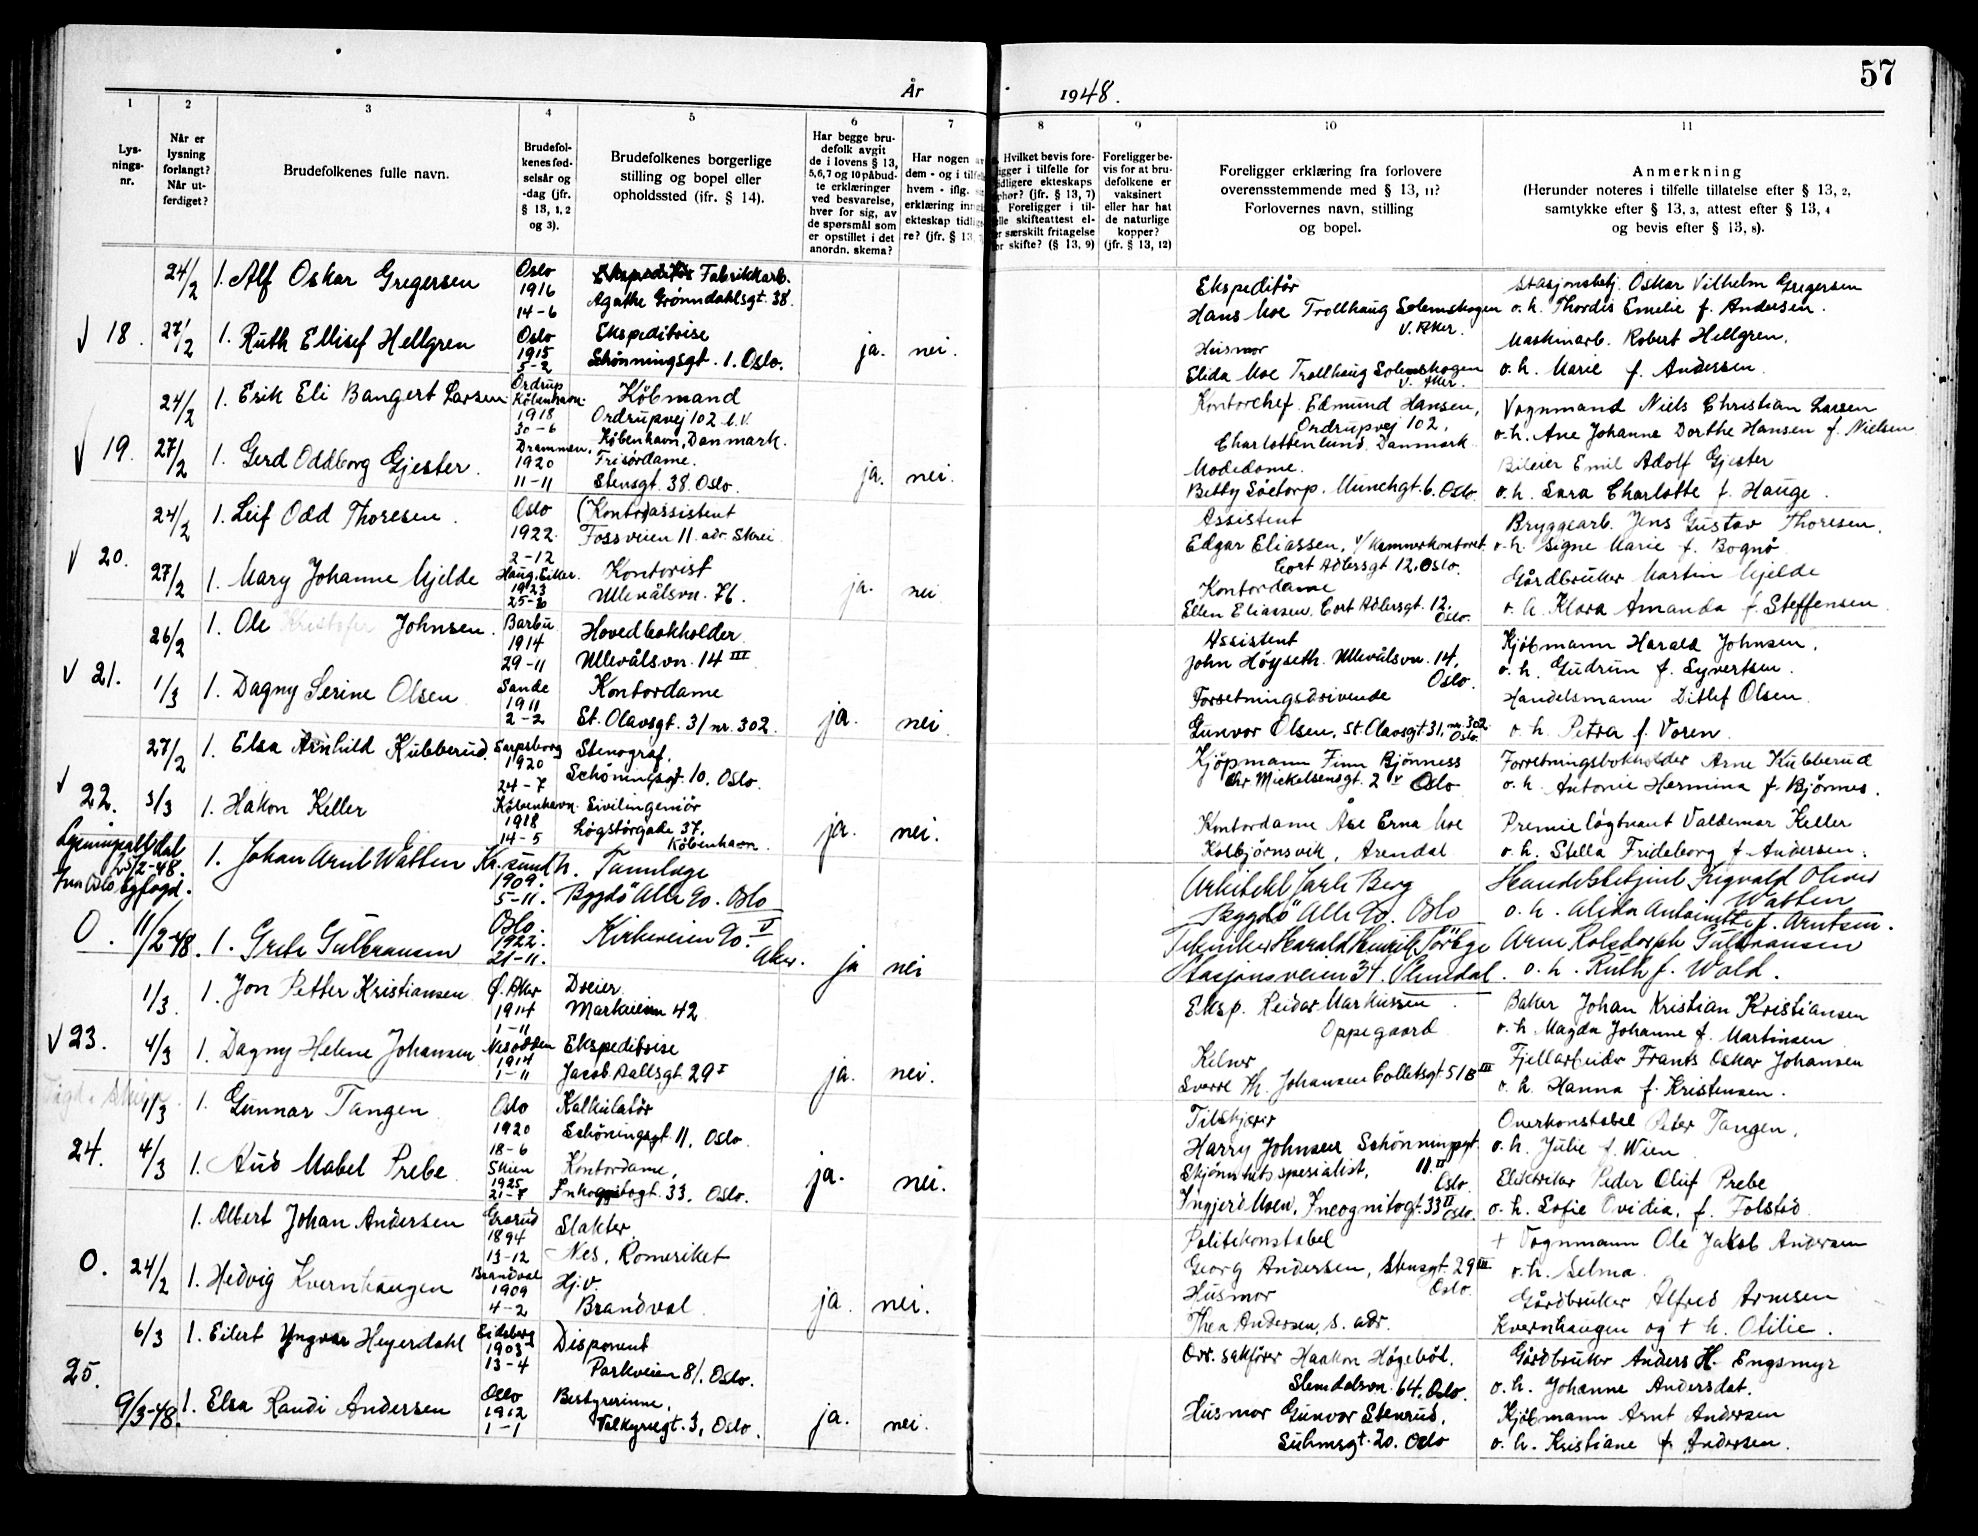 57
År 1948.
1 2 3 4 5 6 7 8 9 10 11
Lys-
nings-
nr.
Når er
lysning
forlangt?
Når ut-
ferdiget?
Brudefolkenes fulle navn.
Brudefol-
kenes fød-
selsår og
-dag (jfr.
§ 13, 1, 2
og 3).
Brudefolkenes borgerlige
stilling og bopel eller
opholdssted (ifr. § 14).
Har begge bru-
defolk avgit
de i lovens § 13,
5,6,7 og 10 påbud-
te erklæringer
ved besvarelse,
hver for sig, av
de spørsmål som
er opstillet i det
anordn. skema?
Har nogen av
dem - og i tilfel
hvem - iflg.
erklæring inng
ekteskap tidlig
re? (jfr. § 13,
Hvilket bevis fore-
ligger i tilfelle for
tidligere ekteskaps
ophør? (jfr. § 13, 7)
Foreligger i til-
felle skifteattest el-
ler særskilt fritagelse
for skifte? (§ 13, 9)
Foreligger be-
vis for at bru-
defolkene er
vaksinert
eller har hat
de naturlige
kopper?
(jfr. § 13, 12)
Foreligger erklæring fra forlovere
overensstemmende med § 13, 11?
Forlovernes navn, stilling
og bopel.
Anmerkning
(Herunder noteres i tilfelle tillatelse efter § 13, 2,
samtykke efter § 13, 3, attest efter § 13, 4
og bevis efter § 13, 8).
24/2 1. Alf Oskar Gregersen Oslo 1916 14-6 Fabrikkarb. Agathe Grønndahlsgt. 38.
Ekspeditör Hans Moe Trollhaug Solemskogen V. Aker.
Stasjonsbetj. Oskar Vilhelm Gregersen o. h. Thordis Emelie f. Andersen.
√ 18. 27/2 1. Ruth Ellisef Hellgren Oslo 1915 5-2 Ekspeditrise Schønningsgt. 1. Oslo. ja. nei.
Husmor Elida Moe Trollhaug Solemskogen V. Aker.
Maskinarb. Robert Hellgren, o. h. Marie f. Andersen.
24/2 1. Erik Eli Bangert Larsen Ordrup København 1918 30-6 Köbmand Ordrupvej 102 København, Danmark.
Kontorchef Edmund Hansen, Ordrupvej 102, Charlottenlund, Danmark
Vognmand Niels Christian Larsen o. h. Ane Johanne Dorthe Hansen f. Nielsen
√ 19. 27/2 1. Gerd Oddborg Gjester. Drammen, 1920 11-11 Frisördame. Stensgt. 38. Oslo. ja. nei.
Modedame. Betty Söetorp. Munchgt. 6. Oslo
Bileier Emil Adolf Gjester o. h. Sara Charlotte f. Hauge.
24/2 1. Leif Odd Thoresen. Oslo 1922. 2-12 (Kontorassistent Fossveien 11. adr. Skrei
Assistent Edgar Eliassen, v/ Kemnerkontoret Cort Adlersgt 12, Oslo.
Bryggearb. Jens Gustav Thoresen. o. h. Signe Marie f. Bognø
√ 20. 27/2 1. Mary Johanne Mjelde Haug, Eiker. 1923 Kontorist Ullevålsvn. 76. ja. nei
Kontordame Ellen Eliassen, Cort Adlersgt. 12. Oslo.
Gårdbruker Martin Mjelde o. h. Klara Amanda f. Steffensen
26/2 1. Ole Kristofer Johnsen. Barbu 1914 29-11 Hovedbokholder Ullevålsvn. 14 III
Assistent John Höyseth. Ullevålsvn. 14, Oslo.
Kjöbmann Harald Johnsen, o. h. Gudrun f. Syvertsen.
√ 21. 1/3 1. Dagny Serine Olsen Sande 1911 2-2 Kontordame St. Olavsgt. 31 nr. 302. ja. nei
Forretningsdrivende Gunvor Olsen, St. Olavsgt 31, nr. 302 Oslo.
Handelsmann Ditlef Olsen o. h. Petra f. Voren.
27/2 1. Elsa Arnhild Kubberud. Sarpsborg 1920 24-7 Stenograf. Schöningsgt. 10. Oslo.
Kjöpmann Finn Bjönness Chr Mickelsensgt. 2 V Oslo
Forretningsbokholder Arne Kubberud o. h. Antonie Hermina f. Björnes.
√ 22. 3/3 1. Håkon Keller København 1918 14-5 Sivilingeniör Lögstörgade 37. København. ja. nei.
Kontordame Åse Erna Moe Kolbjörnsvik, Arendal
Premierlögtnant Valdemar Keller o. h. Stella Frideborg f. Andersen.
Lysningsattest dat. 25/2-48. fra Oslo byfogd.
1. Johan Arnt Watten Kr.sund N. 1909. 5-11. Tannlege Bygdö Alle 90. Oslo
Arkitekt Jarle Berg Bygdö Alle 90. Oslo
Handelsbetjent Sigvald Oliver Watten o. h. Alida Antoinette f. Arntsen.
O. 11/2-48. 1. Grete Gulbransen Oslo. 1922. 21-11. Kirkeveien 90. V Aker. ja nei
Tekniker Harald Henrik Stasjonsveien 34. Slemdal.
Arne Rolsdorph Gulbransen o. h. Ruth f. Wold.
1/3. 1. Jon Petter Kristiansen Ö. Aker 1914 1-11 Dreier. Markveien 42
Eksp. Reidar Markussen Oppegaard
Baker Johan Kristian Kristiansen o. h. Magda Johanne f. Martinsen
√ 23. 4/3 1. Dagny Helene Johansen Nesodden 1914 1-11 Ekspeditrise Jacob Aallsgt. 29 I ja. nei.
Kelner Sverre Th. Johansen Collettsgt 51B III
Fjellarbeider Frants Oskar Johansen o. h. Hanna f. Kristensen.
1/3 1. Gunnar Tangen Oslo 1920 18-6 Kalkulatör Schöningsgt. 11. Oslo.
Tilskjærer Harry Johnsen Schönningsgt. 11. II Oslo
Overkonstabel Peter Tangen, o. h. Julie f. Wien
24. 4/3 1. Aud Mabel Prebe Skien 1925 21-7 Kontordame, Inkognitogt. 33. Oslo. ja. nei.
Skjønnhetsspesialist, Ingjerd Moen, Incognitogt. 33 II Oslo.
Elektriker Peder Oluf Prebe o. h. Sofie Ovidia, f. Folstad.
1. Albert Johan Andersen Grorud 1894 13-12 Slakter. Nes, Romeriket
Politikonstabel Georg Andersen, Stensgt. 29 III Oslo.
+ Vognmann Ole Jakob Andersen o. h. Selma.
O. 24/2 1. Hedvig Kvernhaugen Brandval 1909 4-2 Hj.v. Brandval. ja. nei.
Husmor Thea Andersen, s. adr.
Gårdbruker Alfred Arnesen Kvernhaugen og + h. Otilie.
6/3 1. Eilert Yngvar Heyerdahl Eidsberg 1903 13-4 Disponent Parkveien 81. Oslo.
Ovr. sakförer Haakon Högeböl. Slemdalsvn. 64, Oslo.
Gårdbruker Anders H. Engsmyr o. h. Johanne Andersdat.
25. 9/3-48. 1. Elsa Randi Andersen Oslo 1912 1-1 Bestyrerinne, Valkyriegt. 3, Oslo. ja. nei.
Husmor Gunvor Stenrud, Suhmsgt. 20. Oslo
Kjöbmann Arnt Andersen o. h. Kristiane f. Andersen.